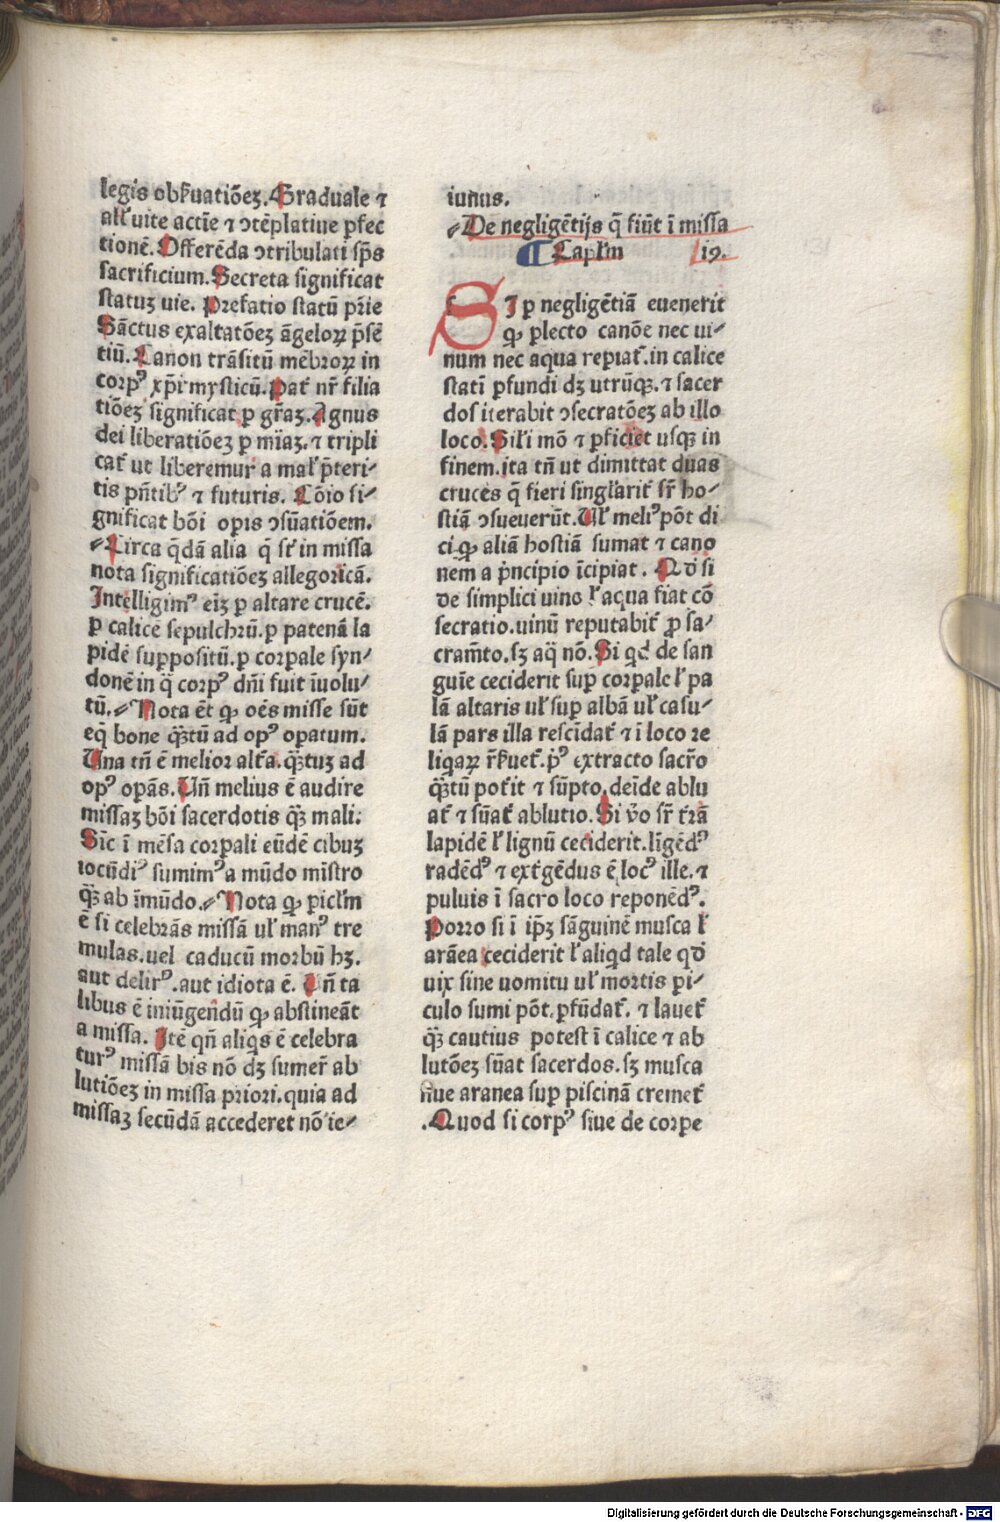 legis obẜuatiōeꝫ. Graduale ⁊
all̓ uite actīe ⁊ ↄtēplatiue ꝑfec
tionē. Offerēda ↄtribulati sp̄s
sacrificium. Secreta significat
statuꝫ uie. Prefatio statū pr̄ie
Sāctus exaltatōeꝫ āgeloꝝ p̄sē
tiū. Canon trāsitū mēbroꝝ in
corpꝰ xp̄i mysticū. Pat̄ nr̄ filia
tiōeꝫ significat ꝑ gr̄aꝫ. Agnus
dei liberatiōeꝫ ꝑ mīaꝫ. ⁊ tripli
cat̄ ut liberemur a mal̓ p̄teri⸗
tis pn̄tibꝰ ⁊ futuris. Cōio si⸗
gnificat bōi opis ↄsūatiōem.
⸗Circa q̄dā alia q̄ st̄ in missa
nota significatiōeꝫ allegoricā.
Intelligimꝰ eīꝫ ꝑ altare crucē.
ꝑ calicē sepulchrū. ꝑ patenā la
pidē suppositū. ꝑ corpale syn⸗
donē in q̄ corpꝰ dn̄i fuit īuolu⸗
tū. ⸗Nota ēt ꝙ oēs misse sūt
eq̄ bone q̄ꝫtū ad opꝰ opatum.
Una tn̄ ē melior alt̄a. q̄ꝫtuꝫ ad
opꝰ opās. Un̄ melius ē audire
missaꝫ bōi sacerdotis q̄ꝫ mali.
Sīc ī mēsa corpali eūdē cibuꝫ
iocūdiꝰ sumimꝰ a mūdo mīstro
q̄ꝫ ab īmūdo. ⸗Nota ꝙ piclm̄
ē si celebrās missā ul̓ manꝰ tre
mulas. uel caducū morbū hꝫ.
aut delirꝰ. aut idiota ē. Un̄ ta
libus ē iniūgendū ꝙ abstineāt
a missa. Itē qn̄ aliqs ē celebra
turꝰ missā bis nō dꝫ sumer̄ ab
lutiōeꝫ in missa priori. quia ad
missaꝫ secūdā accederet nō ie⸗
iunus.
⸗De negligētijs q̄ fiūt ī missa
¶ Caplm̄ 19.
SI ꝑ negligētiā euenerit
ꝙ plecto canōe nec ui⸗
num nec aqua repiat̄. in calice
stati ꝑfundi dꝫ utrūqꝫ. ⁊ sacer
dos iterabit ↄsecratōeꝫ ab illo
loco. Sil̓i mō ⁊ ꝑficiet usqꝫ in
finem. ita tn̄ ut dimittat duas
cruces q̄ fieri singl̓arit̄ sr̄ ho⸗
stiā ↄsueuerūt. Ul̓ meliꝰ pōt di
ci ꝙ aliā hostiā sumat ⁊ cano
nem a p̄ncipio īcipiat. Qd̓ si
de simplici uino l̓ aqua fiat cō
secratio. uinū reputabit̄ ꝓ sa⸗
cram̄to. sꝫ aq̄ nō. Si qd de san
guīe ceciderit sup corpale l̓ pa
lā altaris ul̓ sup albā ul̓ casu⸗
lā pars illa rescīdat̄ ⁊ ī loco re
liqaꝝ r̄ẜuet̄. pꝰ extracto sacr̄o
q̄ꝫtū pot̄it ⁊ sūpto. deīde ablu
at̄ ⁊ sūat̄ ablutio. Si v̓o sr̄ t̄rā
lapidē l̓ lignū ceciderit. līgēdꝰ
radēdꝰ ⁊ ext̄gēdus ē locꝰ ille. ⁊
puluis ī sacro loco reponēdꝰ.
Porro si ī ip̄ꝫ sāguinē musca l̓
arāea ceciderit l̓ aliqd tale qd̓
uix sine uomitu ul̓ mortis pi⸗
culo sumi pōt. ꝑfūdat̄. ⁊ lauet̄
q̄ꝫ cautius potest ī calice ⁊ ab
lutōeꝫ sūat sacerdos. sꝫ musca
siue aranea sup piscinā cremet̄
. Quod si corpꝰ siue de corpe
Digitalisierung gefördert durch die Deutsche Forschungsgemeinschaft - DFG